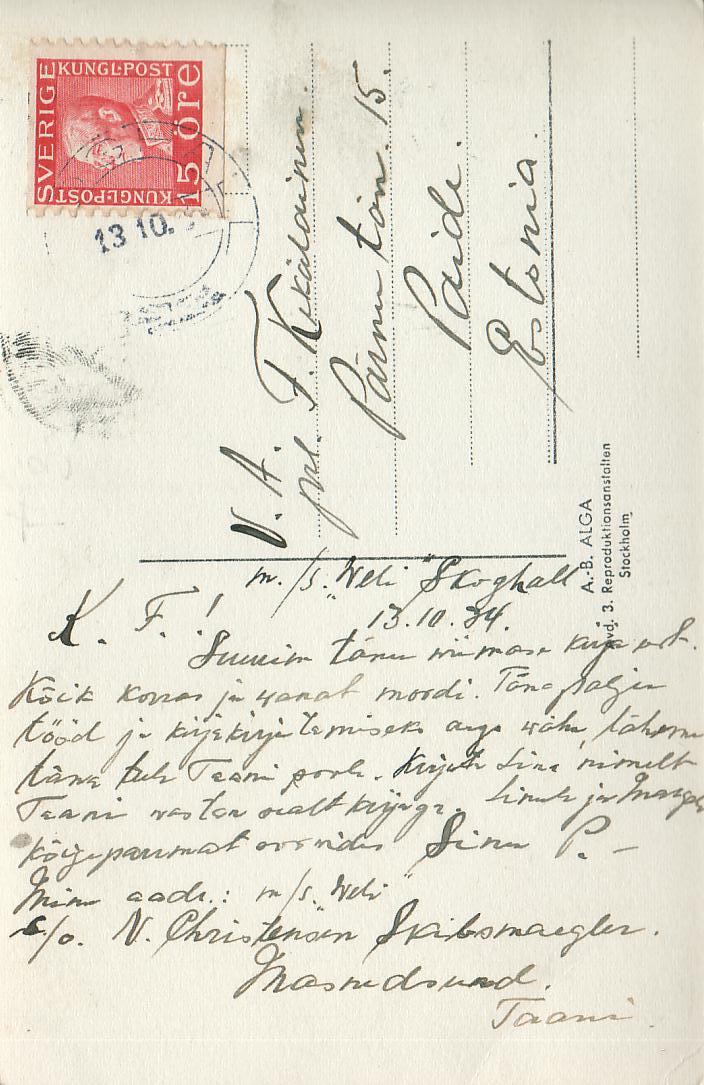 SVERIGE
KUNGL·POST
15 ÖRE
KUNGL·POST
13 10.
V. A.
prl. F. Kekäläinen.
Pärnu tän. 15.
Paide.
Estonia.
A.-B. ALGA
Avd. 3. Reproduktionsanstalten
Stockholm
m./s. "Weli" Skoghall
13.10.34.
K. F.!
Suurim tänu wiimase kirja eest.
Kõik korras ja wanat moodi. Täna palju
tööd ja kirjakirjutamiseks aega wähe, läheme
täna tuh Taani poole. Kirjuta Sina nimelt
Taani wastan sealt kirjaga. Sinule ja
kõigeparimat soovides Sinu P. –
Minu aadr.: m/s. "Weli"
c/o. N. Christensen Skibsmaegler.
Masnedsund.
Taani.